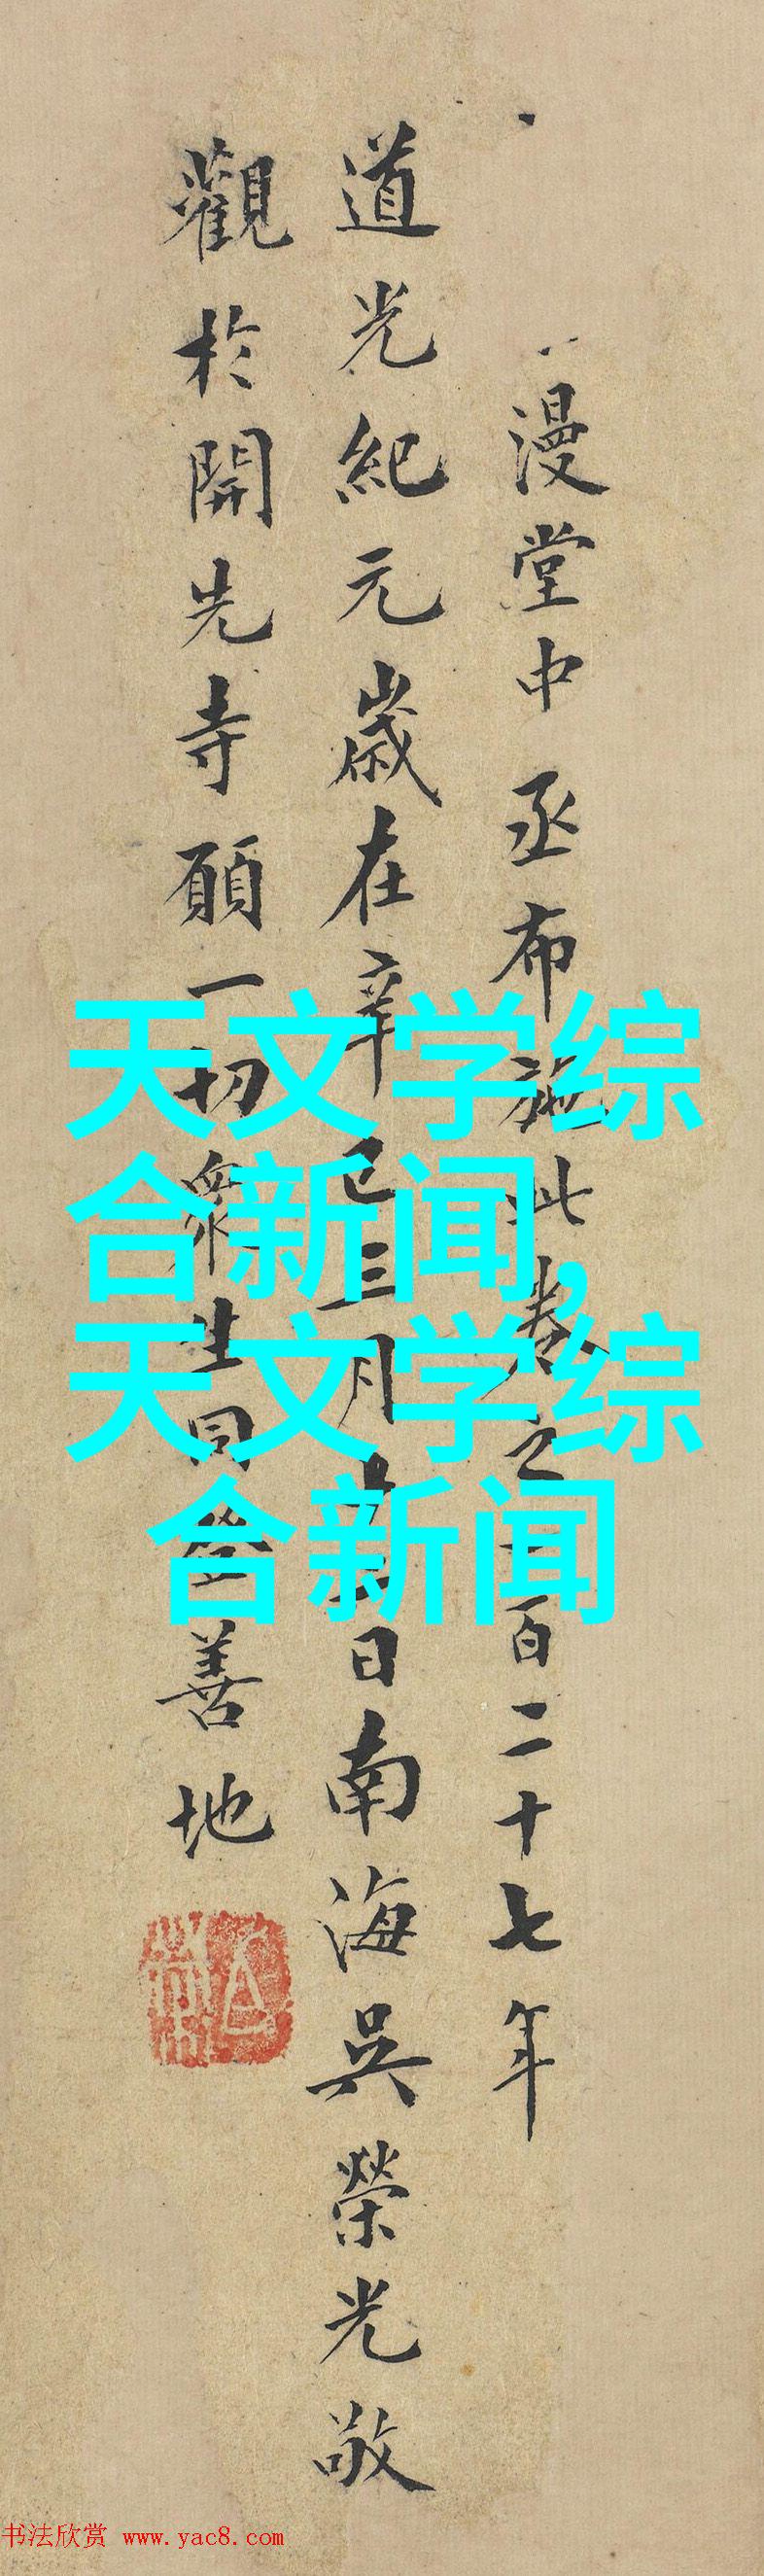 漫堂中丞布施此卷之一百二十七年
道光紀元歲在辛巳三月日南海吳榮光敬
觀於開先寺願一切眾生同登善地
天文学综
合新闻,
天文学综
合新闻
书法欣赏 www.yac8.com